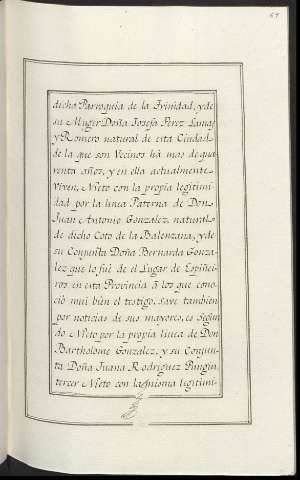 67
dicha Parroquia de la Trinidad, y de
su Muger Doña Josefa Perez Lamas
y Romero natural de esta Ciudad
de la que son Vecinos hà mas de qua
renta años, y en ella actualmente
viven, Nieto con la propia legitimi-
dad por la linea Paterna de Don
Juan Antonio Gonzalez, natural
de dicho Coto de la Balenzana, y de
su Conjunta Doña Bernarda Gonza-
lez que lo fué de el Lugar de Espiñei-
ros en esta Provincia à los que cono-
ció mui bien el testigo, save tambien
por noticias de sus mayores, es Segun
do Nieto por la propia linea de Don
Bartholome Gonzalez, y su Conjun-
ta Doña Juana Rodriguez Pungin,
tercer Nieto con la misma legitimi-